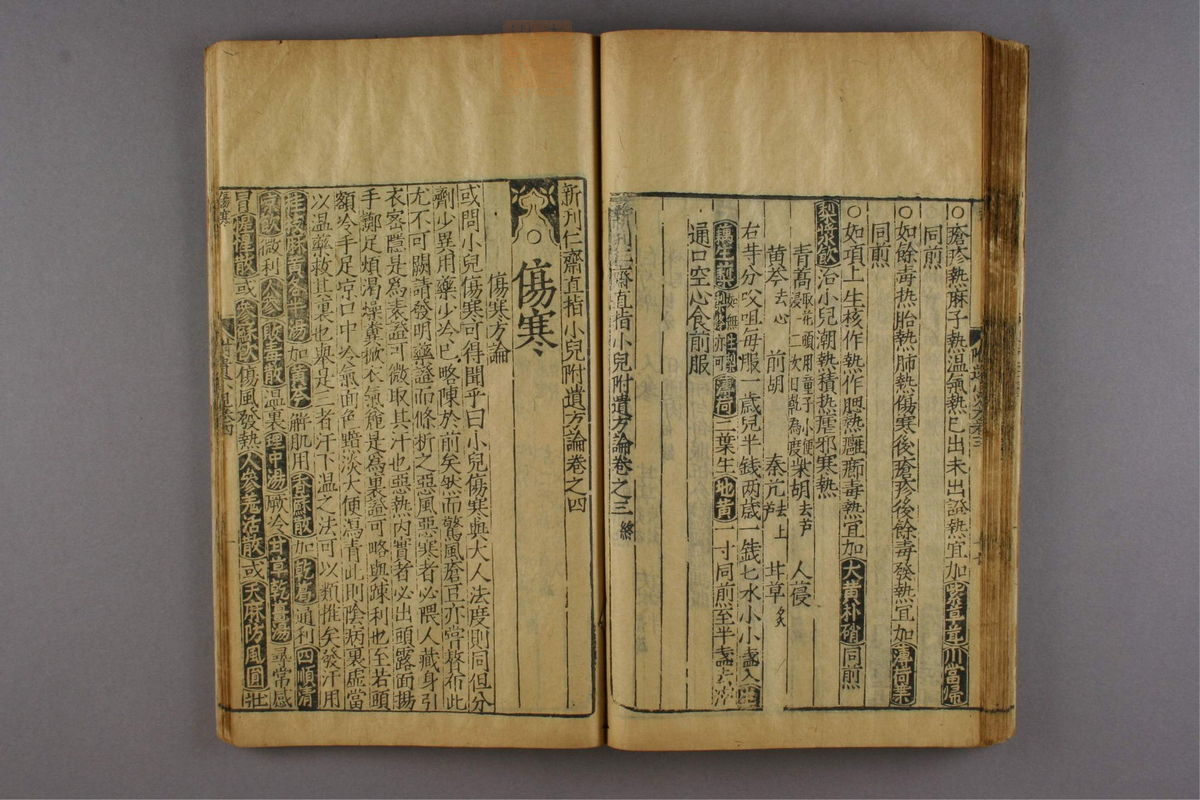 ○瘡疹熱麻子熱温氣熱已出未出證熱宜加川當歸
同煎
○如餘毒热胎熱肺熱傷寒後瘡疹後餘毒發熱宜加薄荷葉
同煎
○如項上生核作熱作腮熱癰癤毒熱宜加大黄朴硝同煎
梨漿飲治小兒潮熱積热瘧邪寒熱
青蒿取花頭用童子小便浸一二次日乹為度 柴胡去芦 人葠
黄芩去心 前胡 秦艽去上芦 甘草炙
右等分㕮咀每服一歲兒半錢两歲一銭匕水小小盞入生
藕生梨如無生梨梨條亦可薄荷二葉生地黄一寸同煎至半盞去滓
通口空心食前服
新刊仁齋直指小兒附遺方論卷之三終
新刊仁齋直指小兒附遺方論卷之四
○傷寒
傷寒方論
或問小兒傷寒可得聞乎曰小兒傷寒與大人法度則同但分
劑少異用藥少冷已略陳於前矣然而驚風瘡疹亦常發布此
尤不可闕請發明藥證而條析之惡風惡寒者必喂人藏身引
衣密隱是爲表證可微取其汗也惡熱内實者必出頭露面揚
手擲足煩渇燥糞掀衣氣麄是爲裏證可略與疎利也至若頭
額冷手足凉口中冷氣面色黯淡大便瀉青此則陰病裏虚當
以温藥救其裏也與是三者汗下温之法可以類推矣發汗用
桂枝麻黄各半湯加黄芩解肌用香蘇散加乾葛通利四順清
凉飲微利人參敗毒散温裏理中湯厥冷甘草乾薑湯尋常感
冒惺惺散或參蘇飲傷風發熱人參羗活散或天麻防風圓壮
傷寒